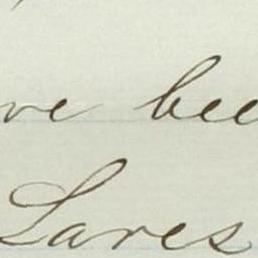 ve bee
Lares